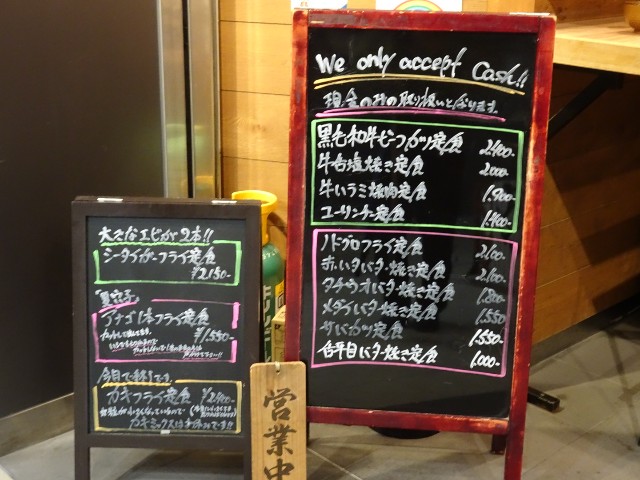 We only accept Cash!!
現金のみの取り扱いとなります。
黒毛和牛ビーフカツ定食 2,400-
牛舌塩焼き定食 2,000-
牛ハラミ焼肉定食 1,900-
ユーリンチー定食 1,400-
ノドグロフライ定食 2,100-
赤いか バター焼き定食 2,100-
タチウオバター焼き定食
メダイバター焼き定食 1,550-
サバカツ定食 1,550-
舌平目バター焼き定食 1,000-
大きなエビが2本!!
シータイガーフライ定食
¥2,150-
アナゴ1本フライ定食
¥1,550-
今月で終了です
カキフライ定食 ¥2,400-
カキミックスはお休みです!!
営業中